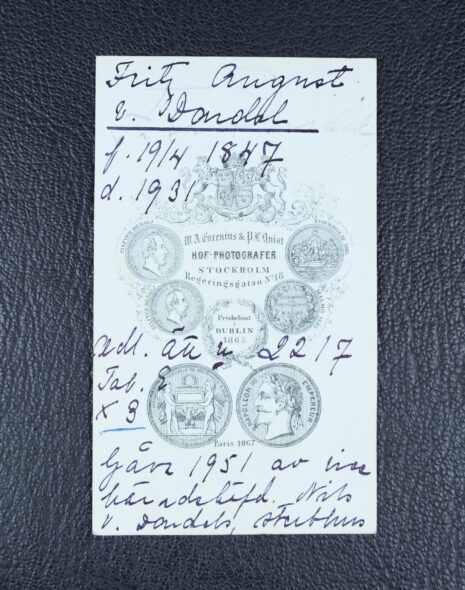 Fritz August
v. Dardel
f. 19/4 1847
d. 1931
SILFVER MEDALJ
STOCKHOLM 1866
W.A. Eurenius & P.L. Quist
HOF-PHOTOGRAFER
STOCKHOLM
Regeringsgatan No 18.
Prisbelönt
i
DUBLIN
1865.
Adl. ätt n 2217
Tab. 2
x 3
NAPOLEON III EMPEREUR
Paris 1867
Gåva 1951 av
häradshöfd. Nils
v. Dardels, sterbhus